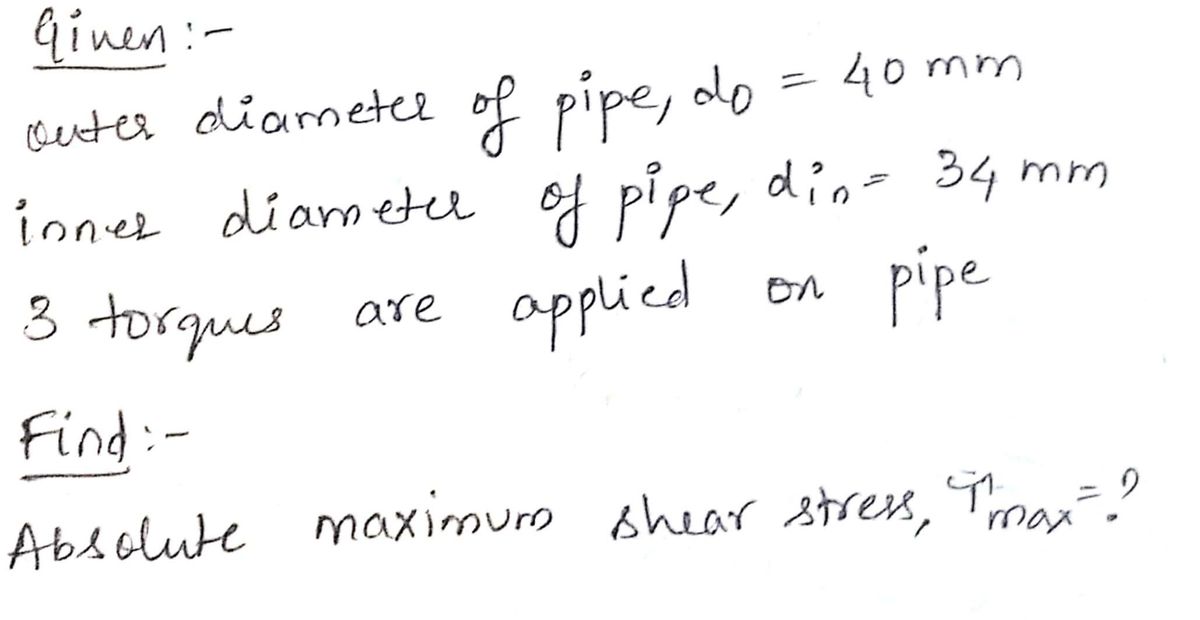 Given :-
outer diameter of pipe, do = 40 mm
inner diameter of pipe, din = 34 mm
3 torques are applied on pipe
Find :-
Absolute maximum shear stress, τmax = ?